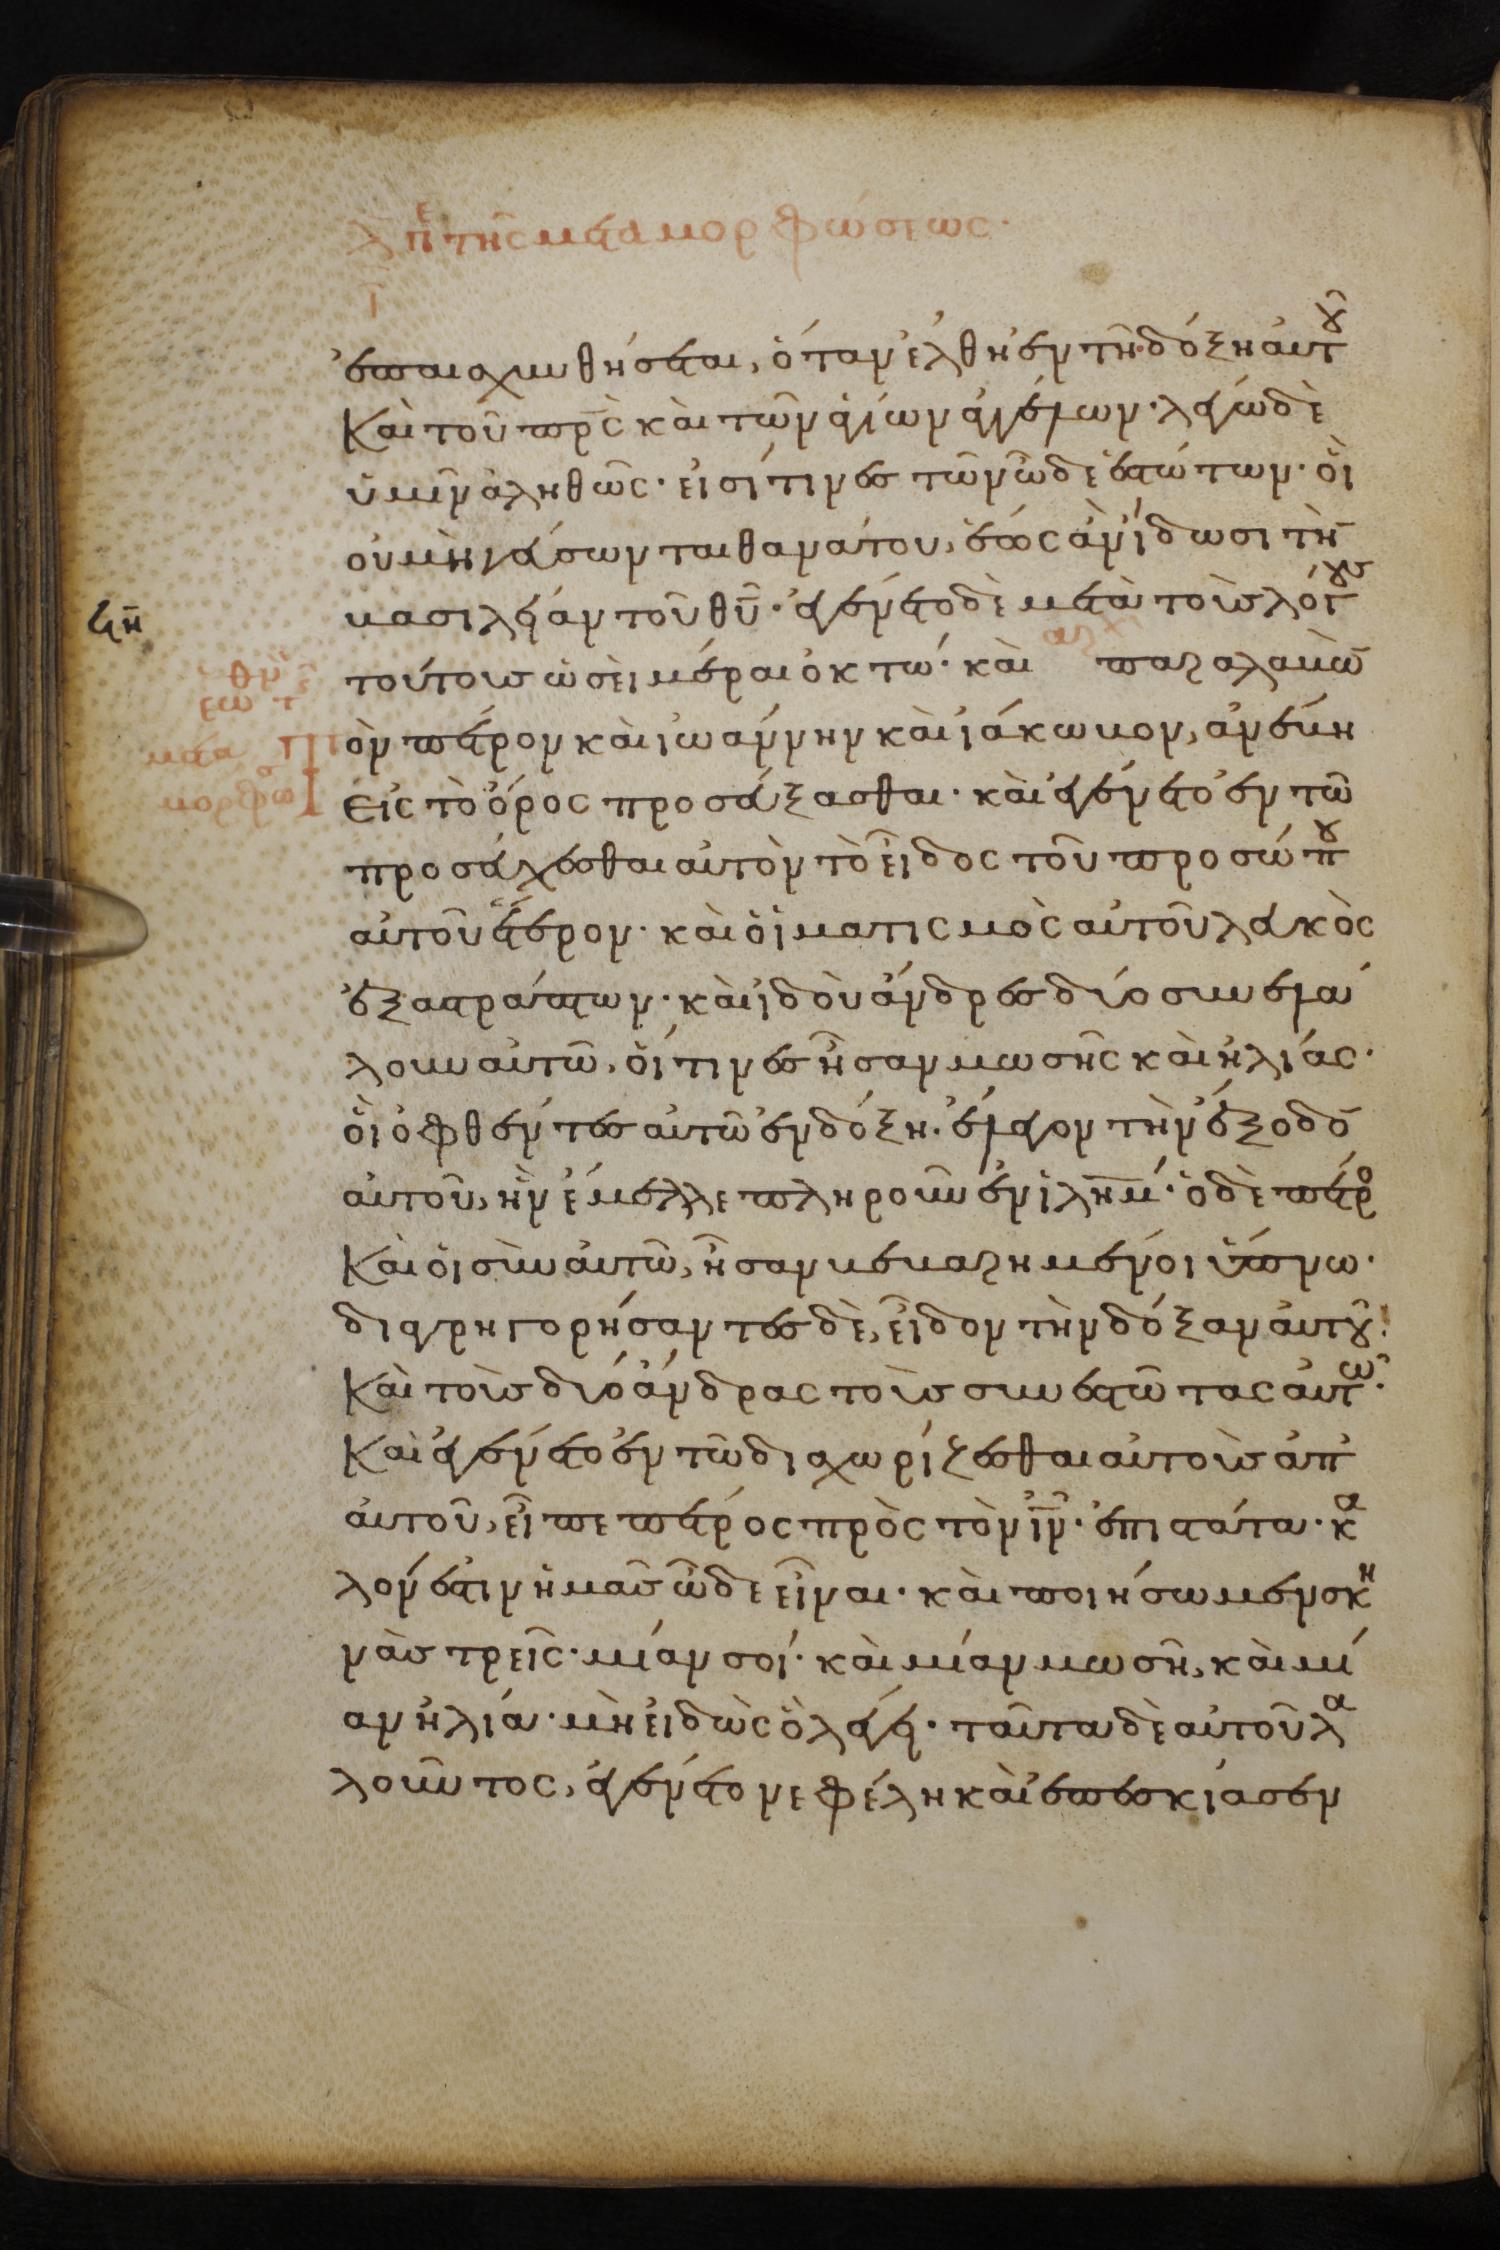 λε πε τῆς μεταμορφώσεως·
ἐπαισχυνθήσεται, ὅταν ἔλθη ἐν τῆ δόξη αὐτοῦ
Καὶ τοῦ πρς καὶ τῶν ἁγίων ἀγγέλων· λέγω δὲ
ὑμῖν ἀληθῶς· εἰσί τινες τῶν ὧδε ἑστώτων· οἳ
οὐ μὴ γεύσωνται θανάτου, ἕως ἂν ἴδωσι τὴν
βασιλείαν τοῦ θυ· ἐγένετο δὲ μετὰ τοὺς λόγους
τούτους ὡσεὶ ἡμέραι ὀκτώ· καὶ παραλαβὼν
ὸν πέτρον καὶ ἰωάννην καὶ ἰάκωβον, ἀνέβη
εἰς τὸ ὄρος προσεύξασθαι· καὶ ἐγένετο ἐν τῶ
προσεύχεσθαι αὐτὸν τὸ εἶδος τοῦ προσώπου
αὐτοῦ ἕτερον· καὶ ὁ ἱματισμὸς αὐτοῦ λευκὸς
ἐξαστράπτων· καὶ ἰδοὺ ἄνδρες δύο συνελά
λουν αὐτῶ, οἵτινες ἦσαν μωσῆς καὶ ἠλίας·
οἳ ὀφθέντες αὐτῶ ἐν δόξη· ἔλεγον τὴν ἔξοδον
αὐτοῦ, ἣν ἔμελλε πληροῦν ἐν ἱλημ· ὁ δὲ πέτρο
Καὶ οἱ σὺν αὐτῶ, ἦσαν βεβαρημένοι ὕπνω·
διαγρηγορήσαντες δὲ, εἶδον τὴν δόξαν αὐτοῦ·
Καὶ τοὺς δύο ἄνδρας τοὺς συνεστῶτας αὐτῶ·
Καὶ ἐγένετο ἐν τῶ διαχωρίζεσθαι αὐτοὺς ἀπ'
αὐτοῦ, εἶπε πέτρος πρὸς τὸν ἰν· ἐπιστάτα· κα
λόν ἐστιν ἡμᾶς ὧδε εἶναι· καὶ ποιήσωμεν σκη
νὰς τρεῖς· μίαν σοί· καὶ μίαν μωσῆ, καὶ μί
αν ἠλία· μὴ εἰδὼς ὃ λέγει· ταῦτα δὲ αὐτοῦ λα
λοῦντος, ἐγένετο νεφέλη καὶ ἐπεσκίασεν